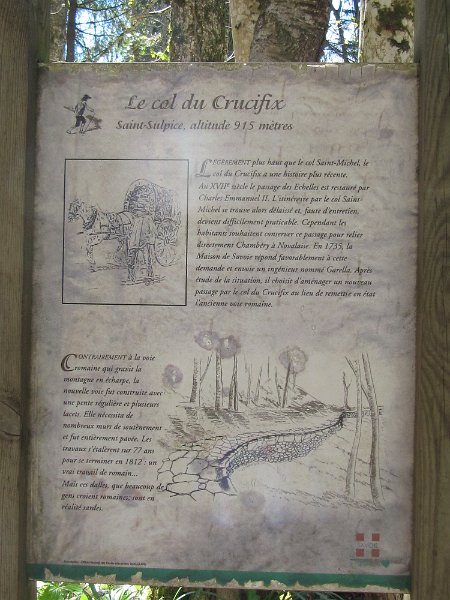 Le col du Crucifix
Saint-Sulpice, altitude 915 mètres
LÉGÈREMENT plus haut que le col Saint-Michel, le
col du Crucifix a une histoire plus récente.
Au XVIIe siècle le passage des Echelles est restauré par
Charles Emmanuel II. L'itinéraire par le col Saint-
Michel se trouve alors délaissé et, faute d'entretien,
devient difficilement praticable. Cependant les
habitants souhaitent conserver ce passage pour relier
directement Chambéry à Novalaise. En 1735, la
Maison de Savoie répond favorablement à cette
demande et envoie un ingénieur nommé Garella. Après
étude de la situation, il choisit d'aménager un nouveau
passage par le col du Crucifix au lieu de remettre en état
l'ancienne voie romaine.
CONTRAIREMENT à la voie
romaine qui gravit la
montagne en écharpe, la
nouvelle voie fut construite avec
une pente régulière et plusieurs
lacets. Elle nécessita de
nombreux murs de soutènement
et fut entièrement pavée. Les
travaux s'étalèrent sur 77 ans
pour se terminer en 1812 : un
vrai travail de romain...
Mais ces dalles, que beaucoup de
gens croient romaines, sont en
réalité sardes.
SAVOIE